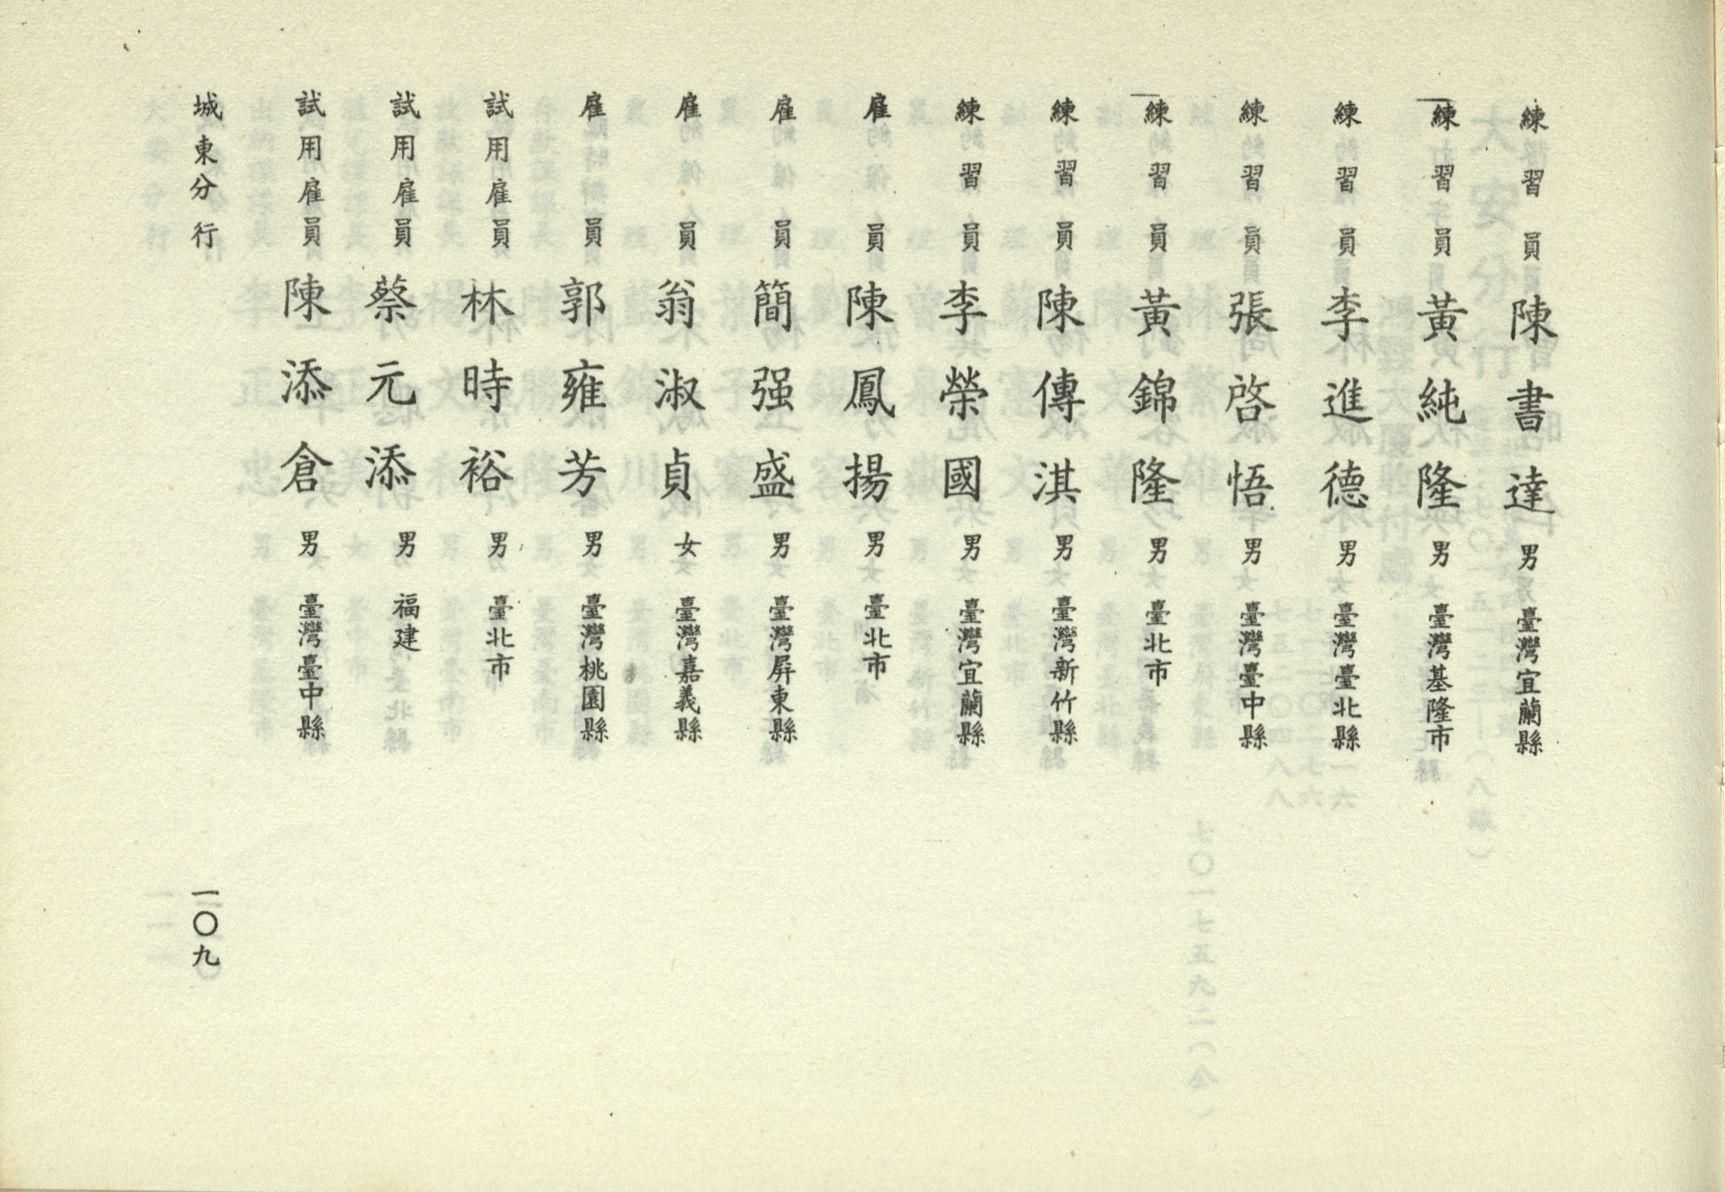 練習員 陳書達 男 臺灣宜蘭縣
練習員 黃純隆 男 臺灣基隆市
練習員 李進德 男 臺灣臺北縣
練習員 張啓悟 男 臺灣臺中縣
練習員 黃錦隆 男 臺北市
練習員 陳傳淇 男 臺灣新竹縣
練習員 李榮國 男 臺灣宜蘭縣
雇員 陳鳳揚 男 臺北市
雇員 簡强盛 男 臺灣屏東縣
雇員 翁淑貞 女 臺灣嘉義縣
雇員 郭雍芳 男 臺灣桃園縣
試用雇員 林時裕 男 臺北市
試用雇員 蔡元添 男 福建
試用雇員 陳添倉 男 臺灣臺中縣
城東分行 一〇九